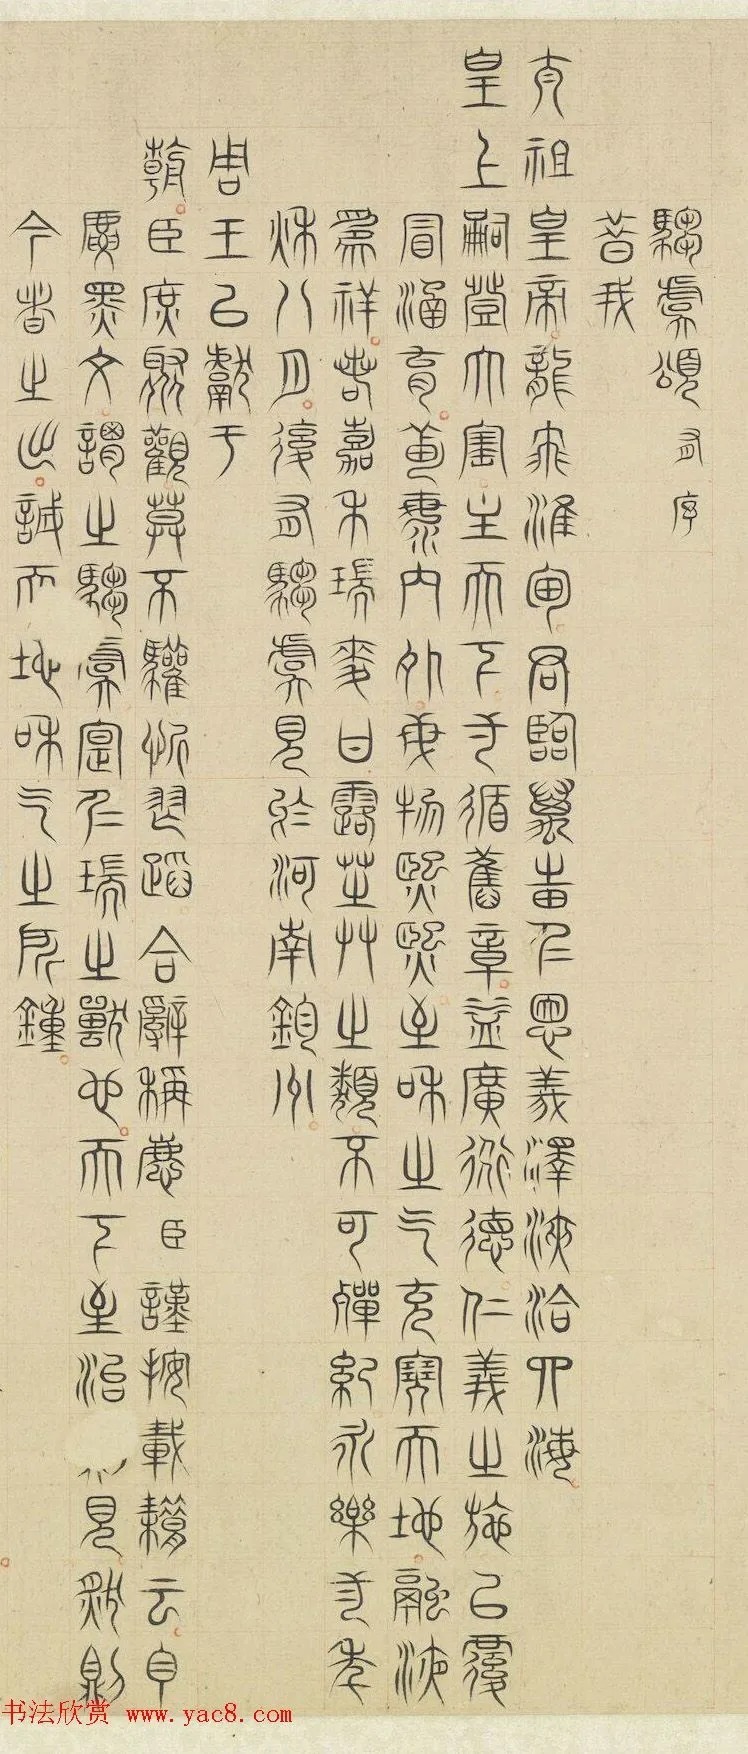 騶虞頌 有序
昔我
太祖皇帝龍飛淮甸君臨萬邦仁恩義澤浹洽四海
皇上嗣登大寶主天下循舊章益廣衍德仁義之施以覆
冒涵育內外熙熙至和之氣充實天地融浹
爲祥若嘉禾瑞麥甘露芝草之類不可殫紀永樂年
秋八月復有騶虞見於河南鈞州
周王以獻于
朝臣庶聚觀莫不驩忻舞蹈合辭稱慶臣謹按載籍云白
虎黑文謂之騶虞寔仁瑞之獸也天下至治見然則
今者之出誠天地和氣之所鍾
书法欣赏 www.yac8.com